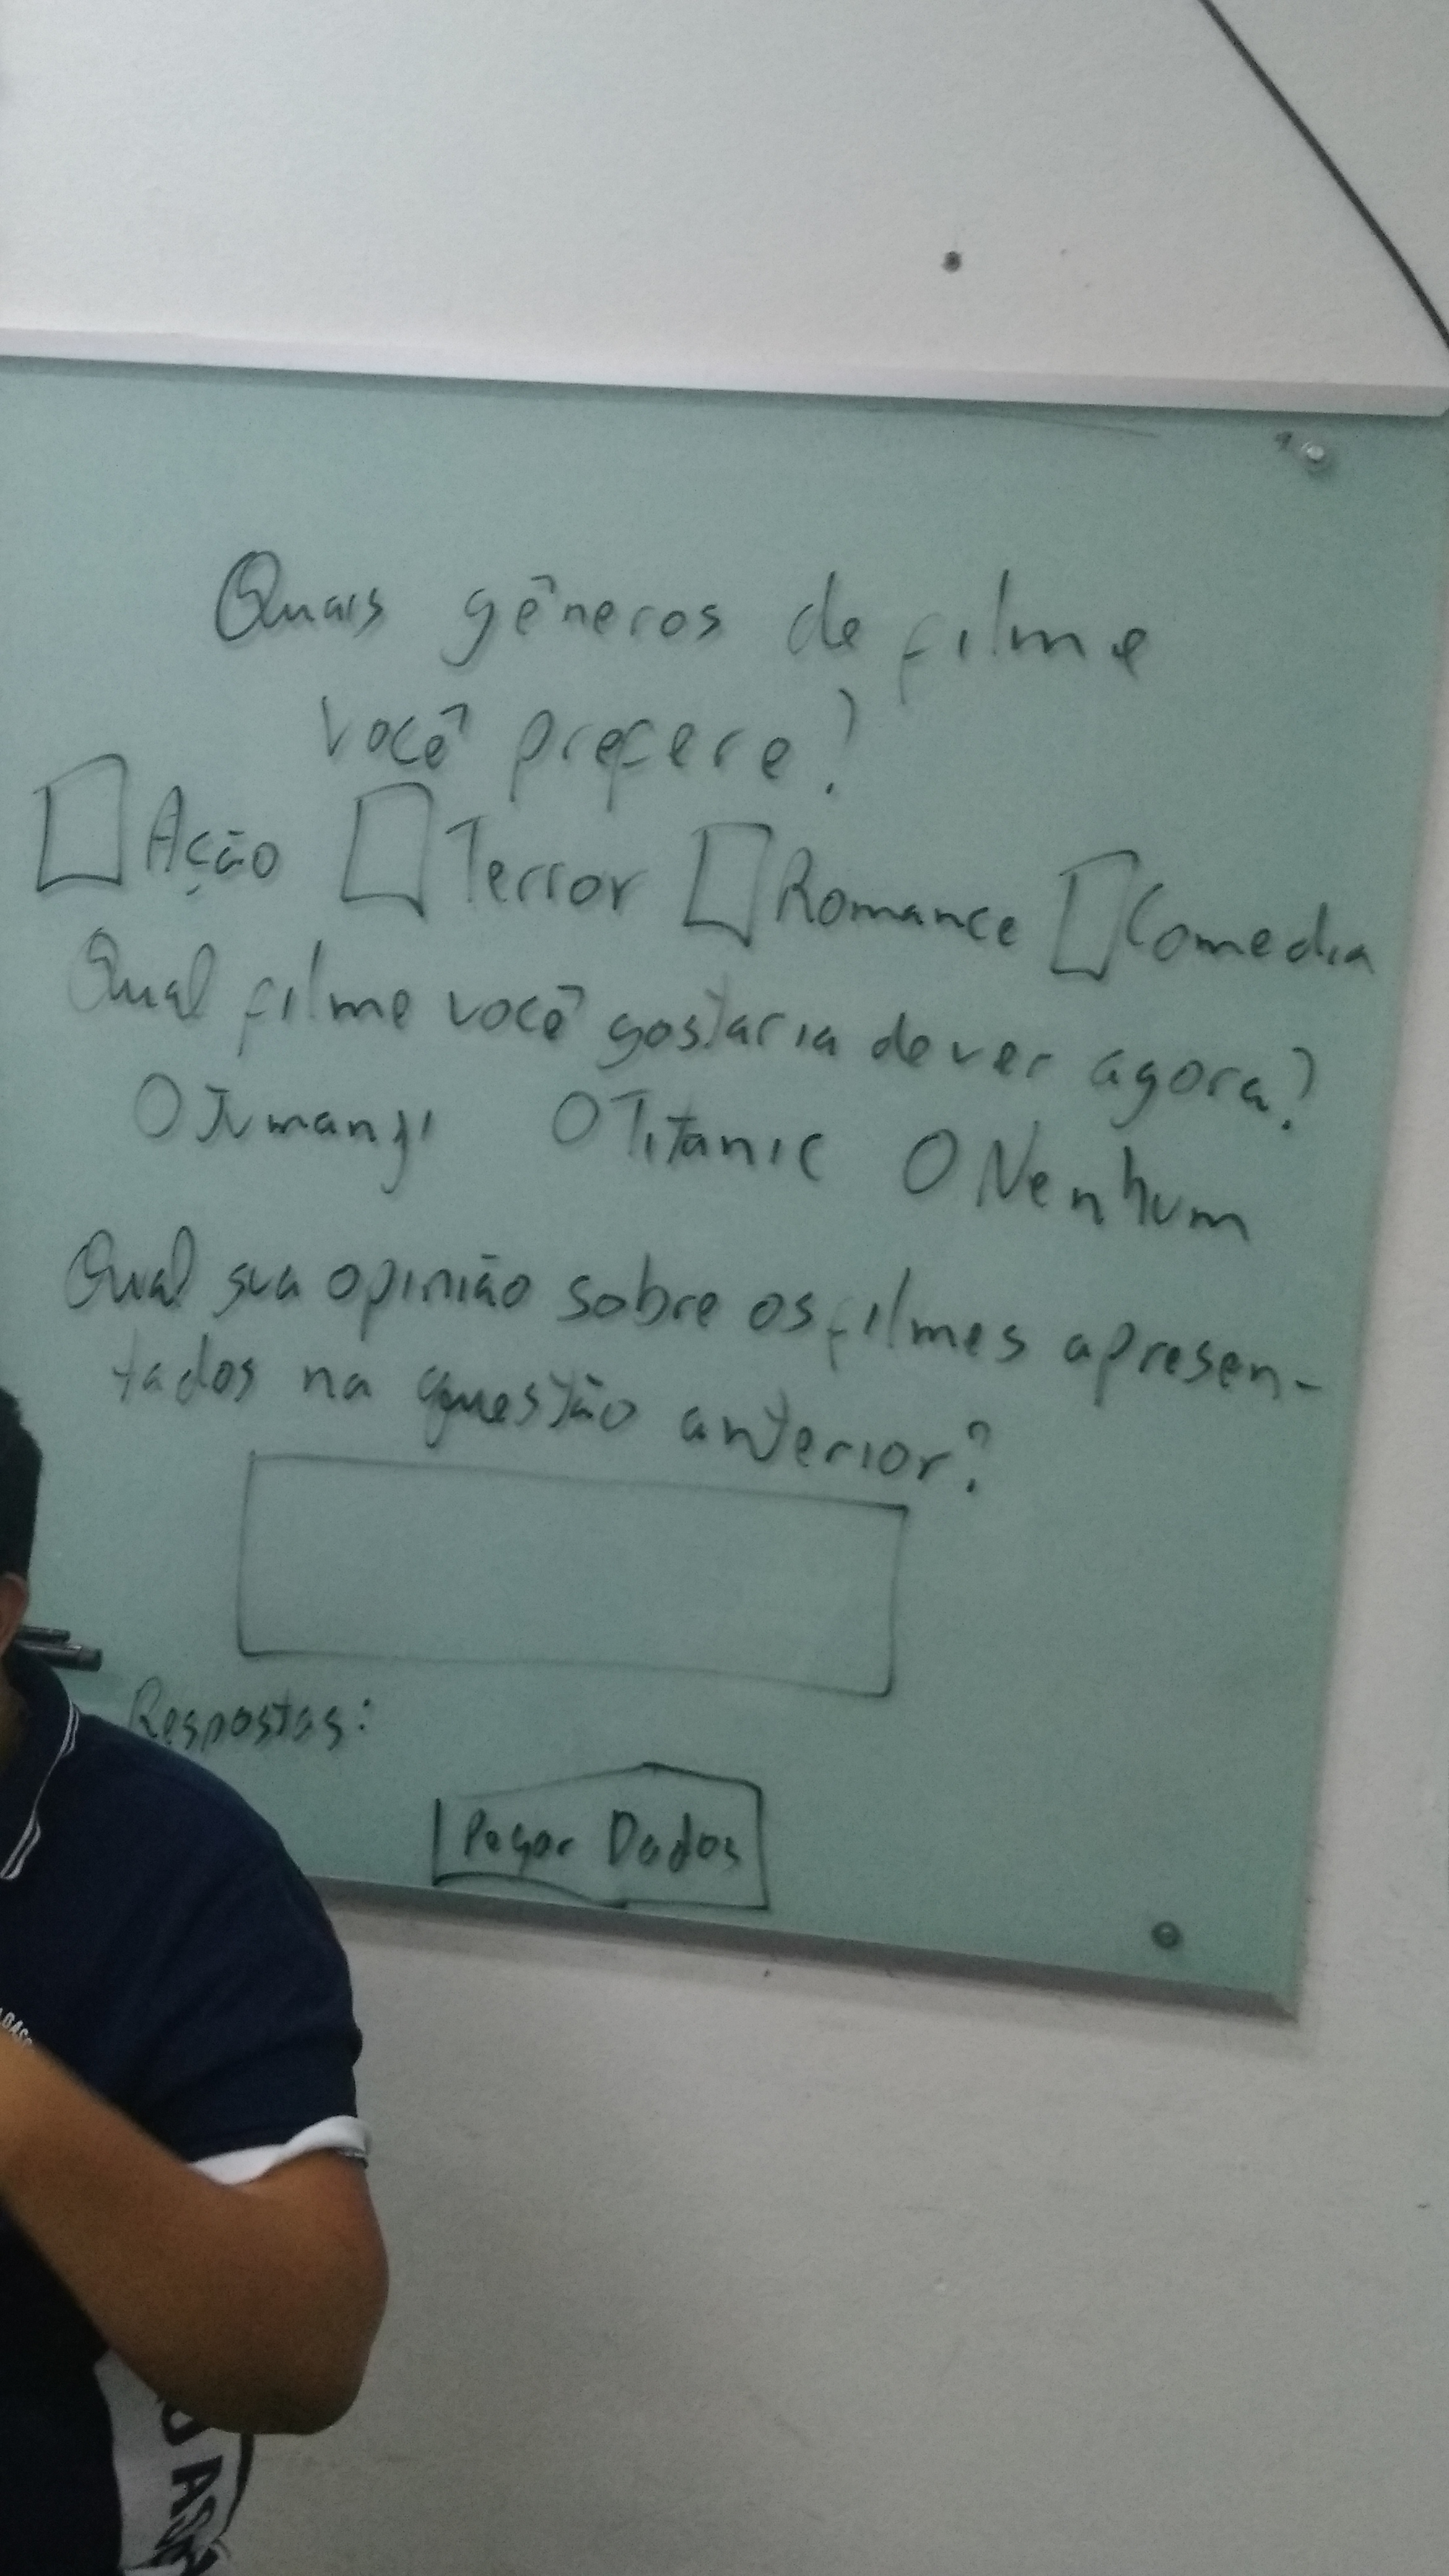 Quais gêneros de filme
você prefere?
Ação Terror Romance Comedia
Qual filme você gostaria de ver agora?
Jumanji Titanic Nenhum
Qual sua opinião sobre os filmes apresen-
tados na questão anterior?
Respostas:
Pegar Dados